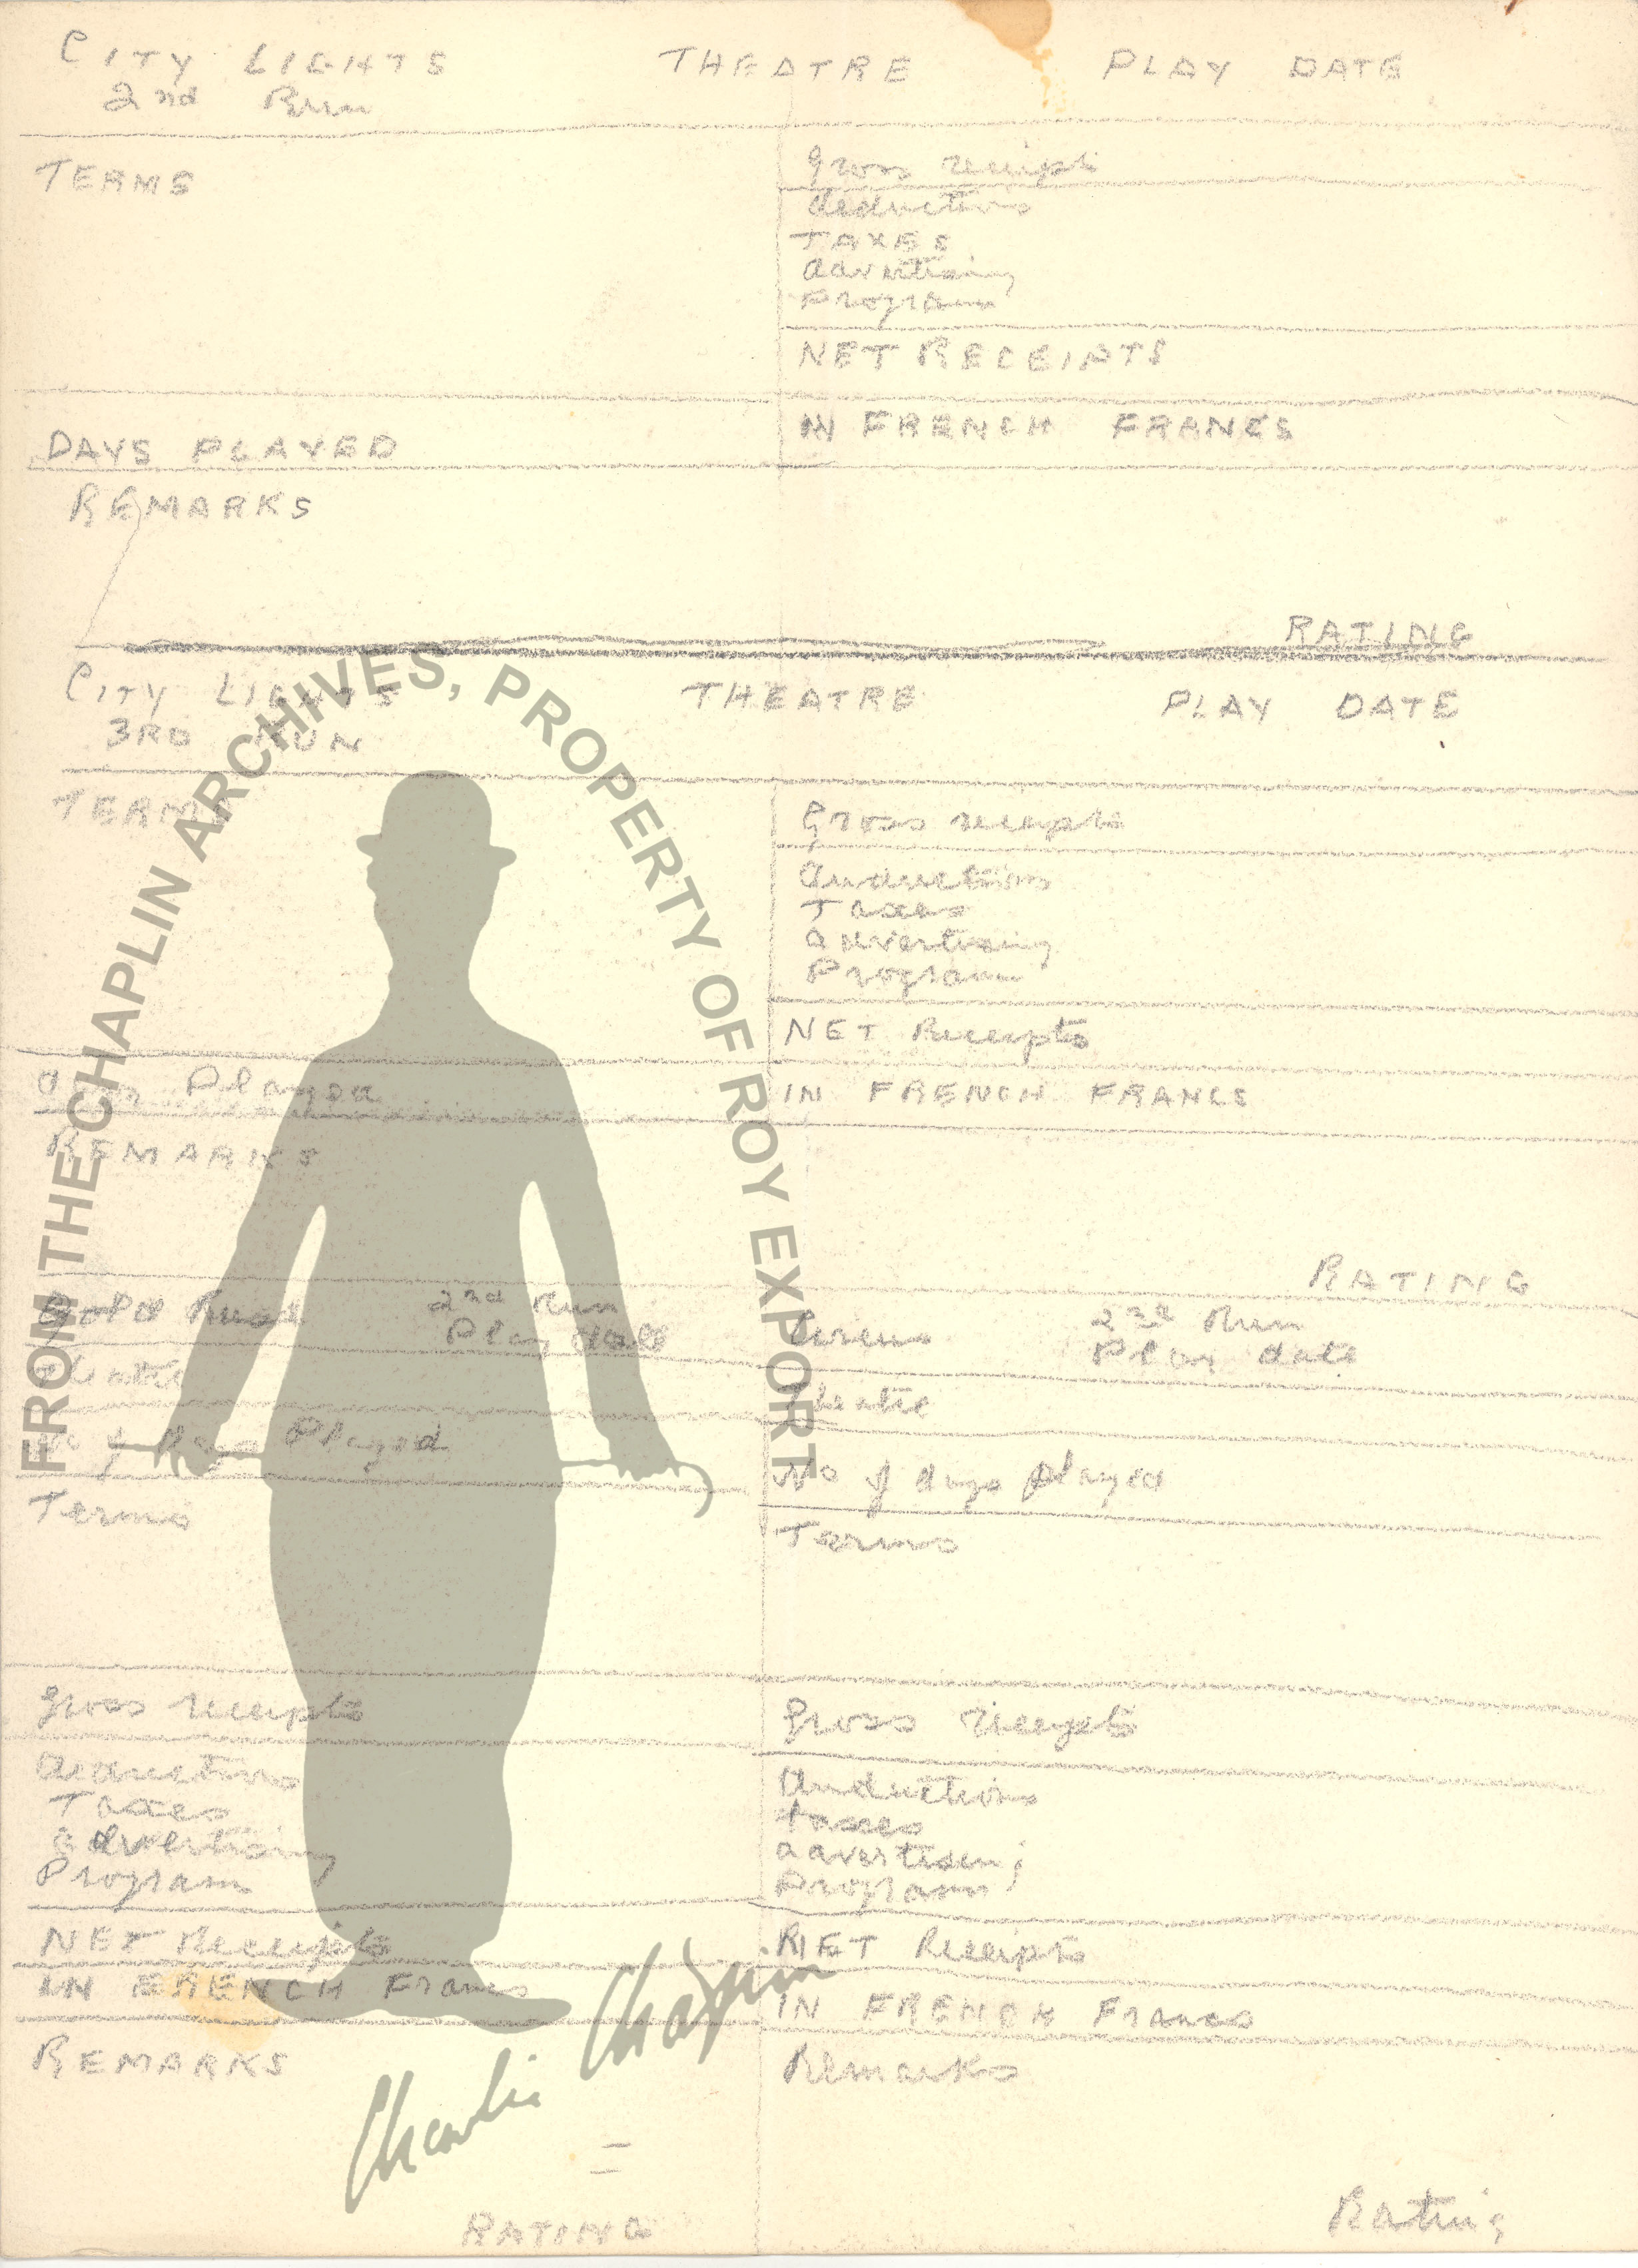 CITY LIGHTS THEATRE PLAY DATE
2nd Run
TERMS
Gross receipts
deductions
TAXES
advertising
Program
NET RECEIPTS
IN FRENCH FRANCS
DAYS PLAYED
REMARKS
RATING
CITY LIGHTS THEATRE PLAY DATE
3RD RUN
TERMS
Gross receipts
deductions
Taxes
advertising
Program
NET Receipts
days Played
IN FRENCH FRANCS
REMARKS
RATING
Gold Rush 2nd Run
Play date
Theatre
No of days Played
Terms
Gross receipts
Deductions
Taxes
advertising
Program
NET Receipts
IN FRENCH Francs
REMARKS
RATING
Circus 2nd Run
Play date
Theatre
No of days played
Terms
Gross receipts
Deductions
taxes
advertising
Program
NET Receipts
IN FRENCH Francs
Remarks
Rating
FROM THE CHAPLIN ARCHIVES, PROPERTY OF ROY EXPORT
Charlie Chaplin